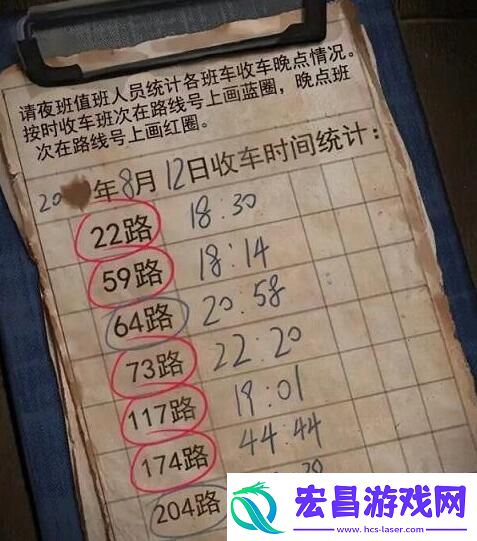 请夜班值班人员统计各班车收车晚点情况。
按时收车班次在路线号上画蓝圈，晚点班
次在路线号上画红圈。
20 年8月12日收车时间统计：
22路 18:30
59路 18:14
64路 20:58
73路 22:20
117路 19:01
174路 44:44
204路
宏昌游戏网
www.hcs-laser.com